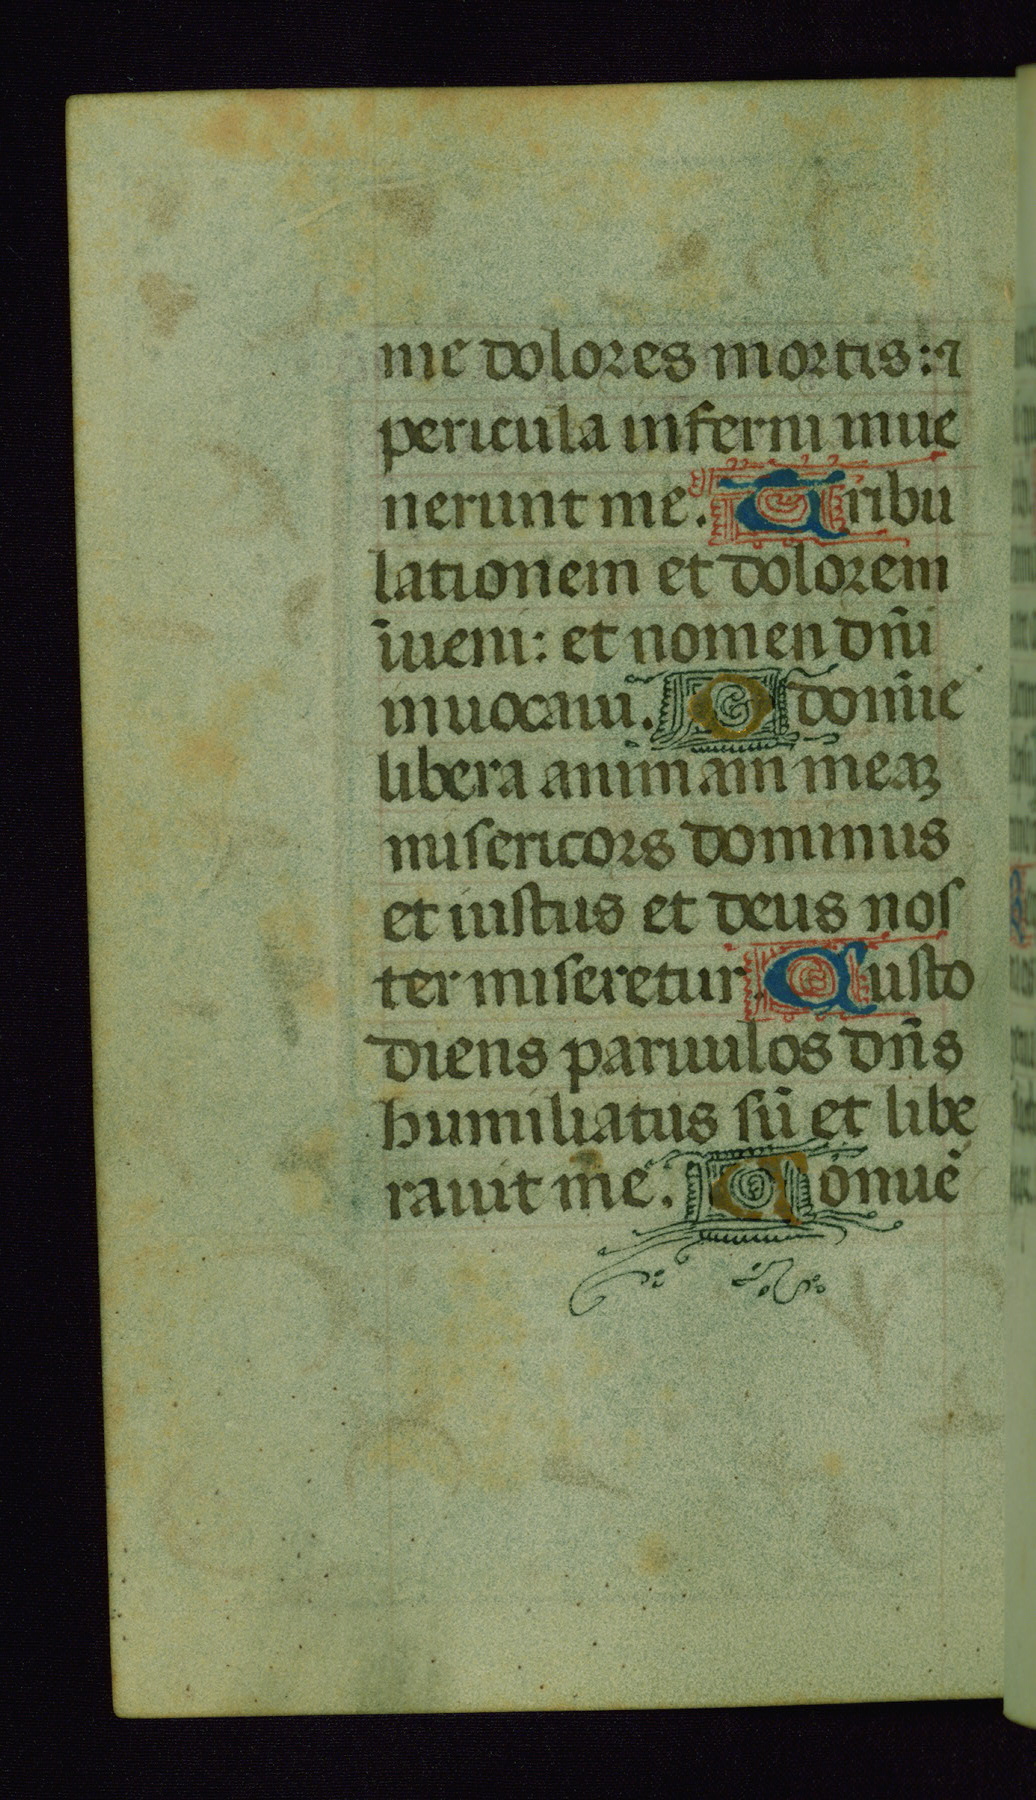 me dolores mortis: ⁊
pericula inferni inue
nerunt me. Tribu
lationem et dolorem
īueni: et nomen dñi
inuocaui. O domīe
libera animam meaꝫ
misericors dominus
et iustus et deus nos
ter miseretur. Custo
diens paruulos dñs
humiliatus sū et libe
rauit me. Conuē